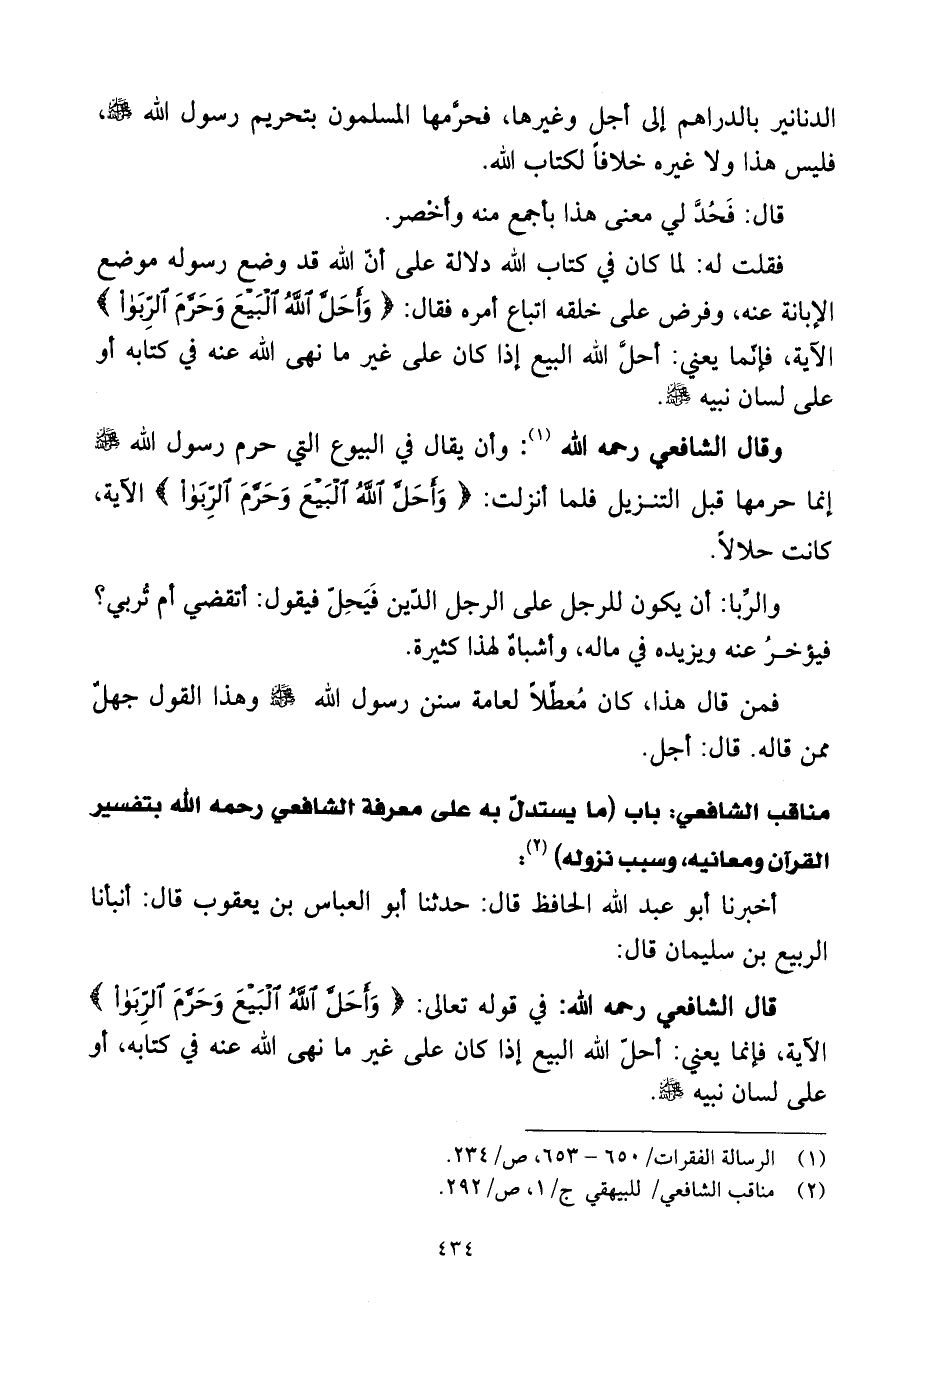 الدنانير بالدراهم إلى أجل وغيرها، فحرَّمها المسلمون بتحريم رسول الله ﷺ،
فليس هذا ولا غيره خلافاً لكتاب الله.
قال: فَحُدَّ لي معنى هذا بأجمع منه وأَخْصر.
فقلت له: لما كان في كتاب الله دلالة على أنّ الله قد وضع رسوله موضع
الإبانة عنه، وفرض على خلقه اتباع أمره فقال: ﴿ وَأَحَلَّ ٱللَّهُ ٱلْبَيْعَ وَحَرَّمَ ٱلرِّبَوٰا۟ ﴾
الآية، فإنّما يعني: أحلَّ الله البيع إذا كان على غير ما نهى الله عنه في كتابه أو
على لسان نبيه ﷺ.
وقال الشافعي رحمه الله (١): وأن يقال في البيوع التي حرم رسول الله ﷺ
إنما حرمها قبل التنـزيل فلما أنزلت: ﴿ وَأَحَلَّ ٱللَّهُ ٱلْبَيْعَ وَحَرَّمَ ٱلرِّبَوٰا۟ ﴾ الآية،
كانت حلالاً.
والرِّبا: أن يكون للرجل على الرجل الدّين فَيَحِلّ فيقول: أتقضي أم تُربي؟
فيؤخـرُ عنه ويزيده في ماله، وأشباهٌ لهذا كثيرة.
فمن قال هذا، كان مُعطّلاً لعامة سنن رسول الله ﷺ وهذا القول جهلٌ
ممن قاله. قال: أجل.
مناقب الشافعي: باب (ما يستدلّ به على معرفة الشافعي رحمه الله بتفسير
القرآن ومعانيه، وسبب نزوله) (٢):
أخبرنا أبو عبد الله الحافظ قال: حدثنا أبو العباس بن يعقوب قال: أنبأنا
الربيع بن سليمان قال:
قال الشافعي رحمه الله: في قوله تعالى: ﴿ وَأَحَلَّ ٱللَّهُ ٱلْبَيْعَ وَحَرَّمَ ٱلرِّبَوٰا۟ ﴾
الآية، فإنما يعني: أحلّ الله البيع إذا كان على غير ما نهى الله عنه في كتابه، أو
على لسان نبيه ﷺ.
(١) الرسالة الفقرات/ ٦٥٠ – ٦٥٣، ص/ ٢٣٤.
(٢) مناقب الشافعي/ للبيهقي ج/ ١، ص/ ٢٩٢.
٤٣٤